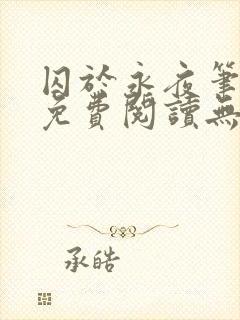 囚於永夜筆
免費閱讀無
承皓